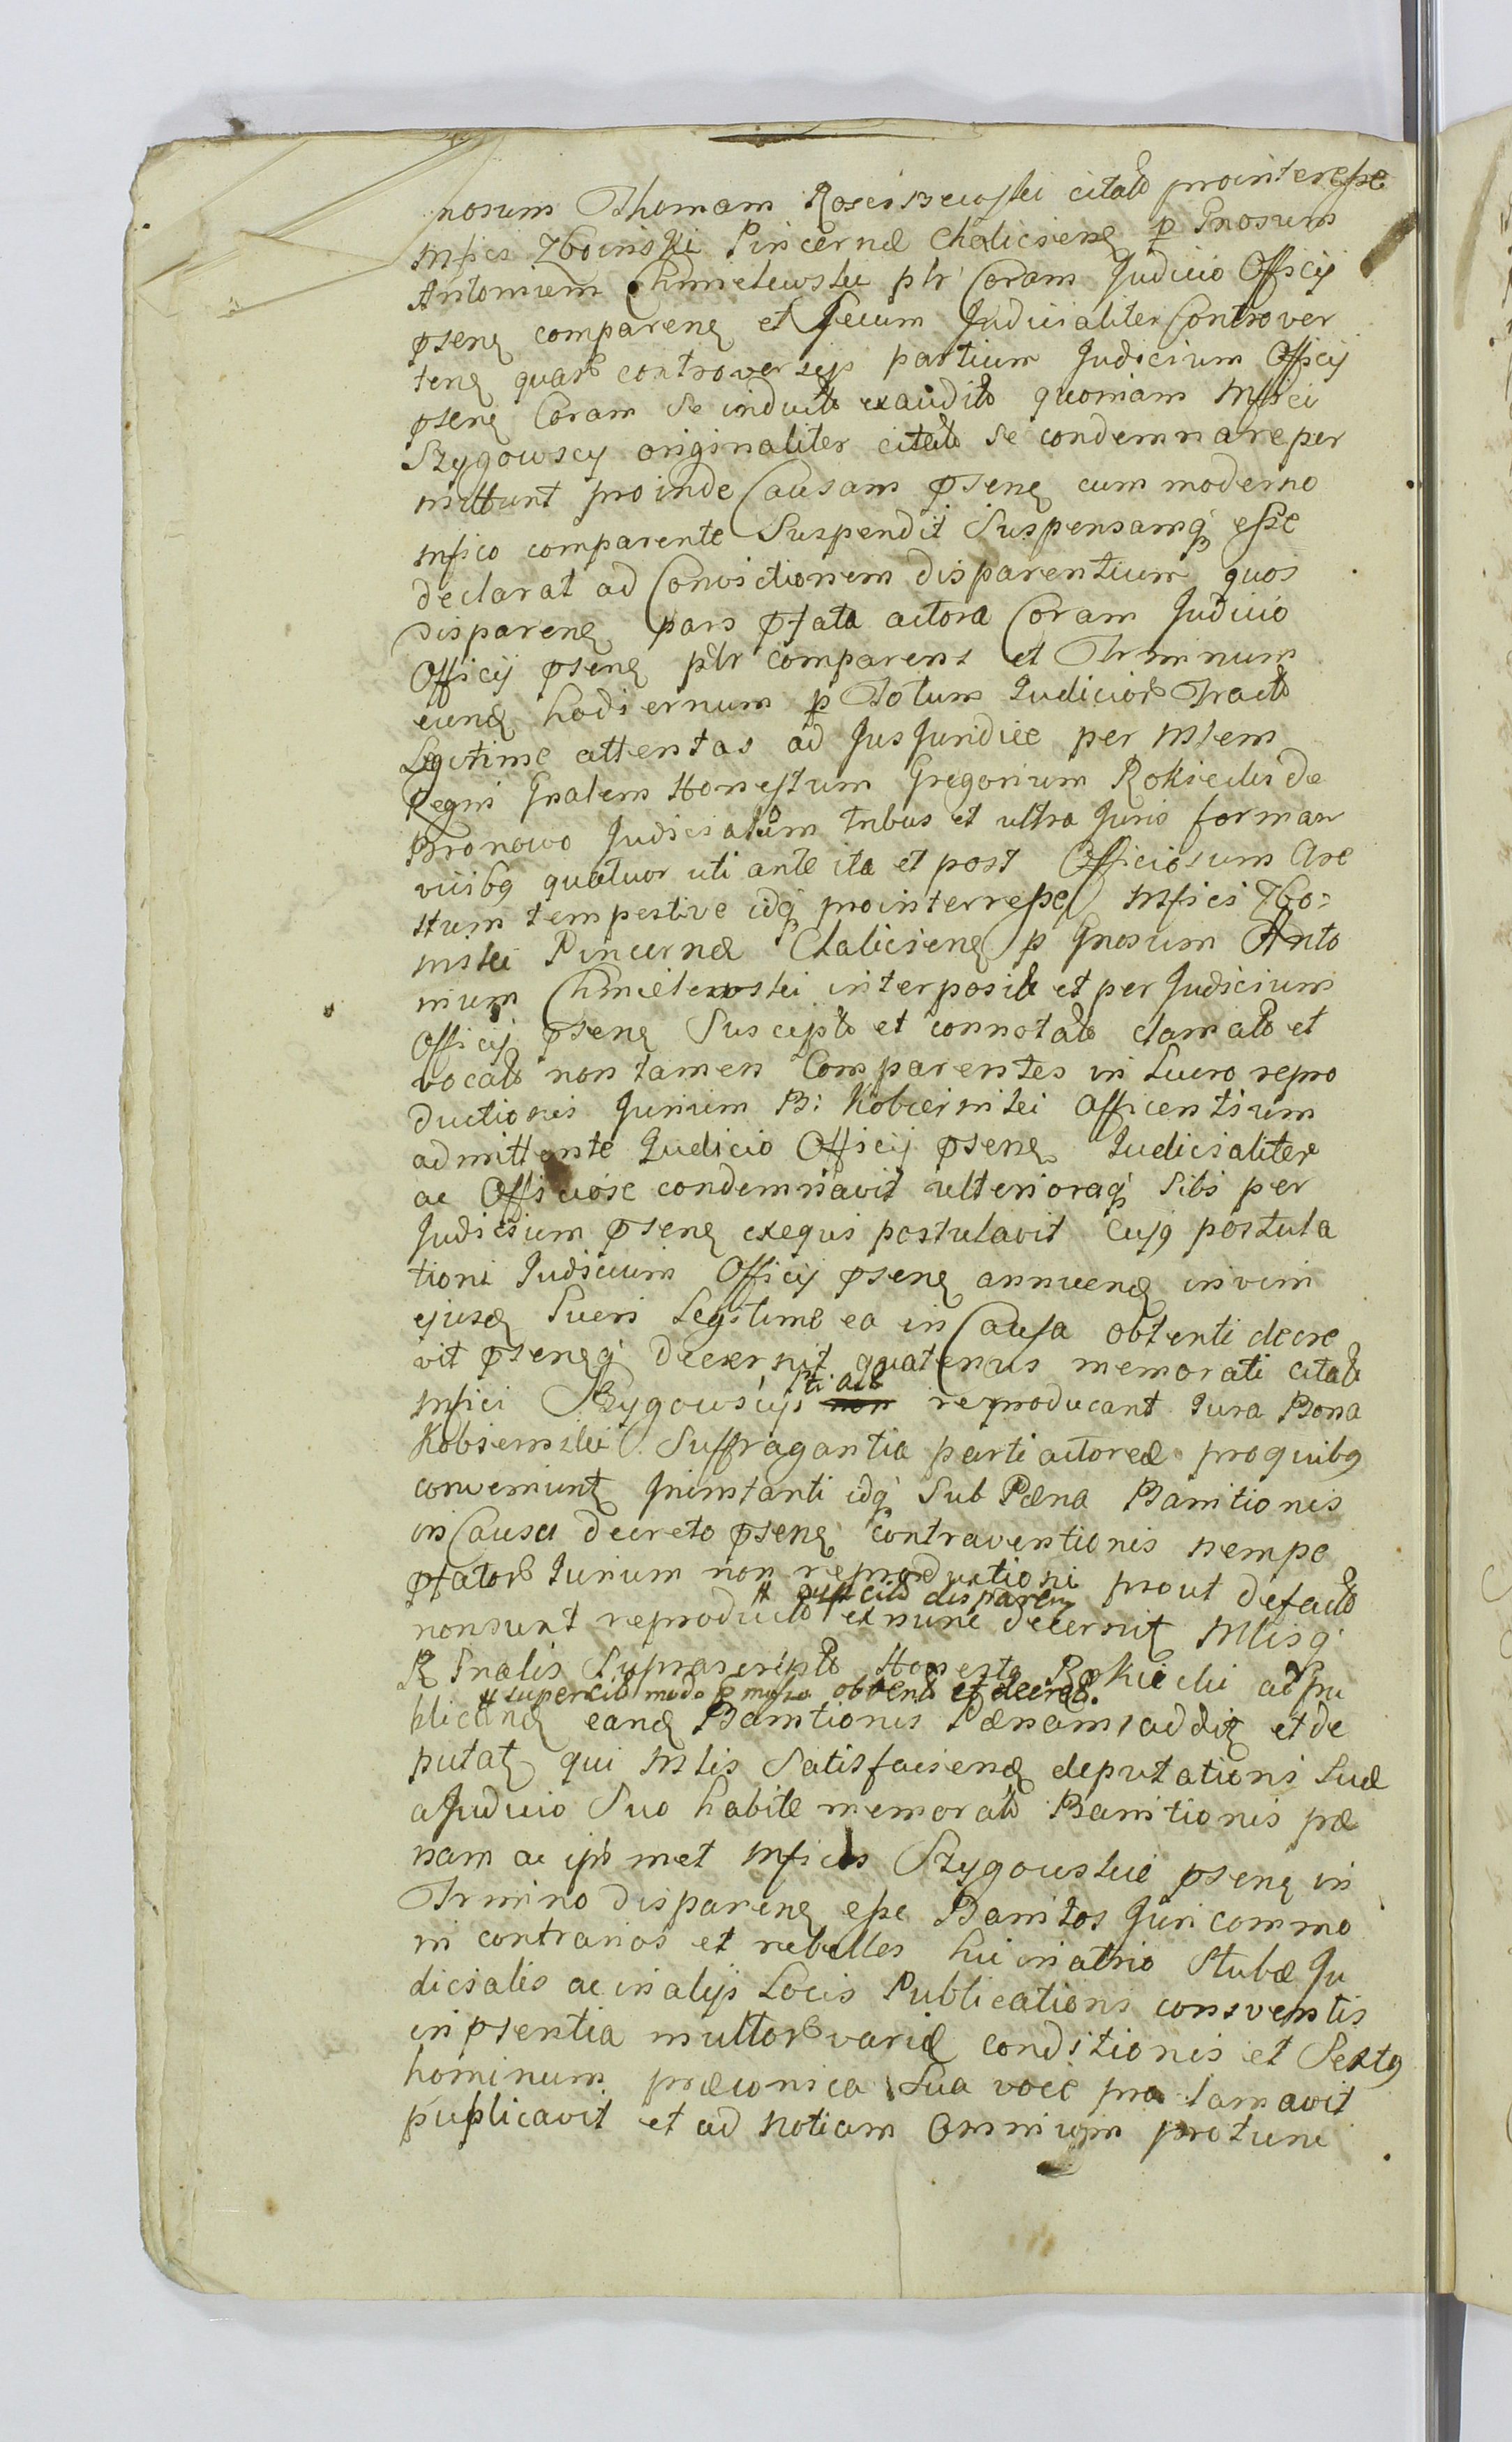 nosum Thomam Rosciszewski citato prointeresse
Mfici Zboinski Pincernæ Chalicien p Gnosum
Antonium Chmielewski plr Coram Judicio Officij
pnsen comparen et secum Judicialiter Controver
ten quar controversijs partium Judicium Officij
psen Coram se inducto exaudito quoniam Mfici
Szygowscy originaliter citato se condemnare per
mittunt proinde Causam psen cum moderno
Mfico comparente Suspendit Suspensamq esse
declarat ad Convictionem disparentium quos
disparen pars pfata actora Coram Judicio
Officij psen plr comparens et Trminum
eund hodiernum p Totum Judicior Tracto
Legitime attentas ad Jus Juridice per Mlem
Regni Gnalem Honestum Gregorium Rokicki de
Bronowo Judicialum tribus et ultra Juris forman
viisbq quatuor uti ante ita et post Officiosum Are
stum tempestive idq prointerresse Mfici Zbo=
inski Pincernæ Chalicien p Gnosum Anto
nium Chmielewski interposito et per Judicium
Officij psen Suscepto et connotato clamato et
vocato non tamen Comparentes in Lucro repro
ductionis Jurium B: Kobiernikei afficentium
admittente Judicio Officij psen Judicialiter
ac Officiose condemnavit ulterioraq Sibi per
Judicium psen exequi postulavit Cujq postula
tioni Judicium Officij psen annuend in vim
ejusd Lucri Legitime ea in Causa obtenti decre
vit psenq decernit quatenus memorati citato
Mfici Szygowscijs non reproducant Jura Bona
Suffragantia parti actoreæ proquibq
conveniunt Ininstanti idq Sub Pæna Banitionis
in Causa decreto psen contraventionis nempe
pfator Jurium non reproductioni prout defacto
disparen
nonsunt reproducto ex nunc decernit Mlisq
R Gnalis Suprascripto Honesto Rokicki ad pu
# super modo obtento et decreto.
blicand eand Banitionis Pænam addit et de
putat qui Mlis Satisfaciend deputationi Suæ
a Judicio Suo habitæ memorato Banitionis pæ
nam ac ipsmet Mficos Szygowskie psen in
Trmino disparen esse Banitos Juri commo
ni contrarios et rebelles hic in atrio Stubæ Ju
dicialis ac in alijs Locis Publicationi consventis
in psentia multor variæ conditionis et Sextq
hominum præconica Sua voce proclamavit
puplicavit et ad Notiam Omnium protunc